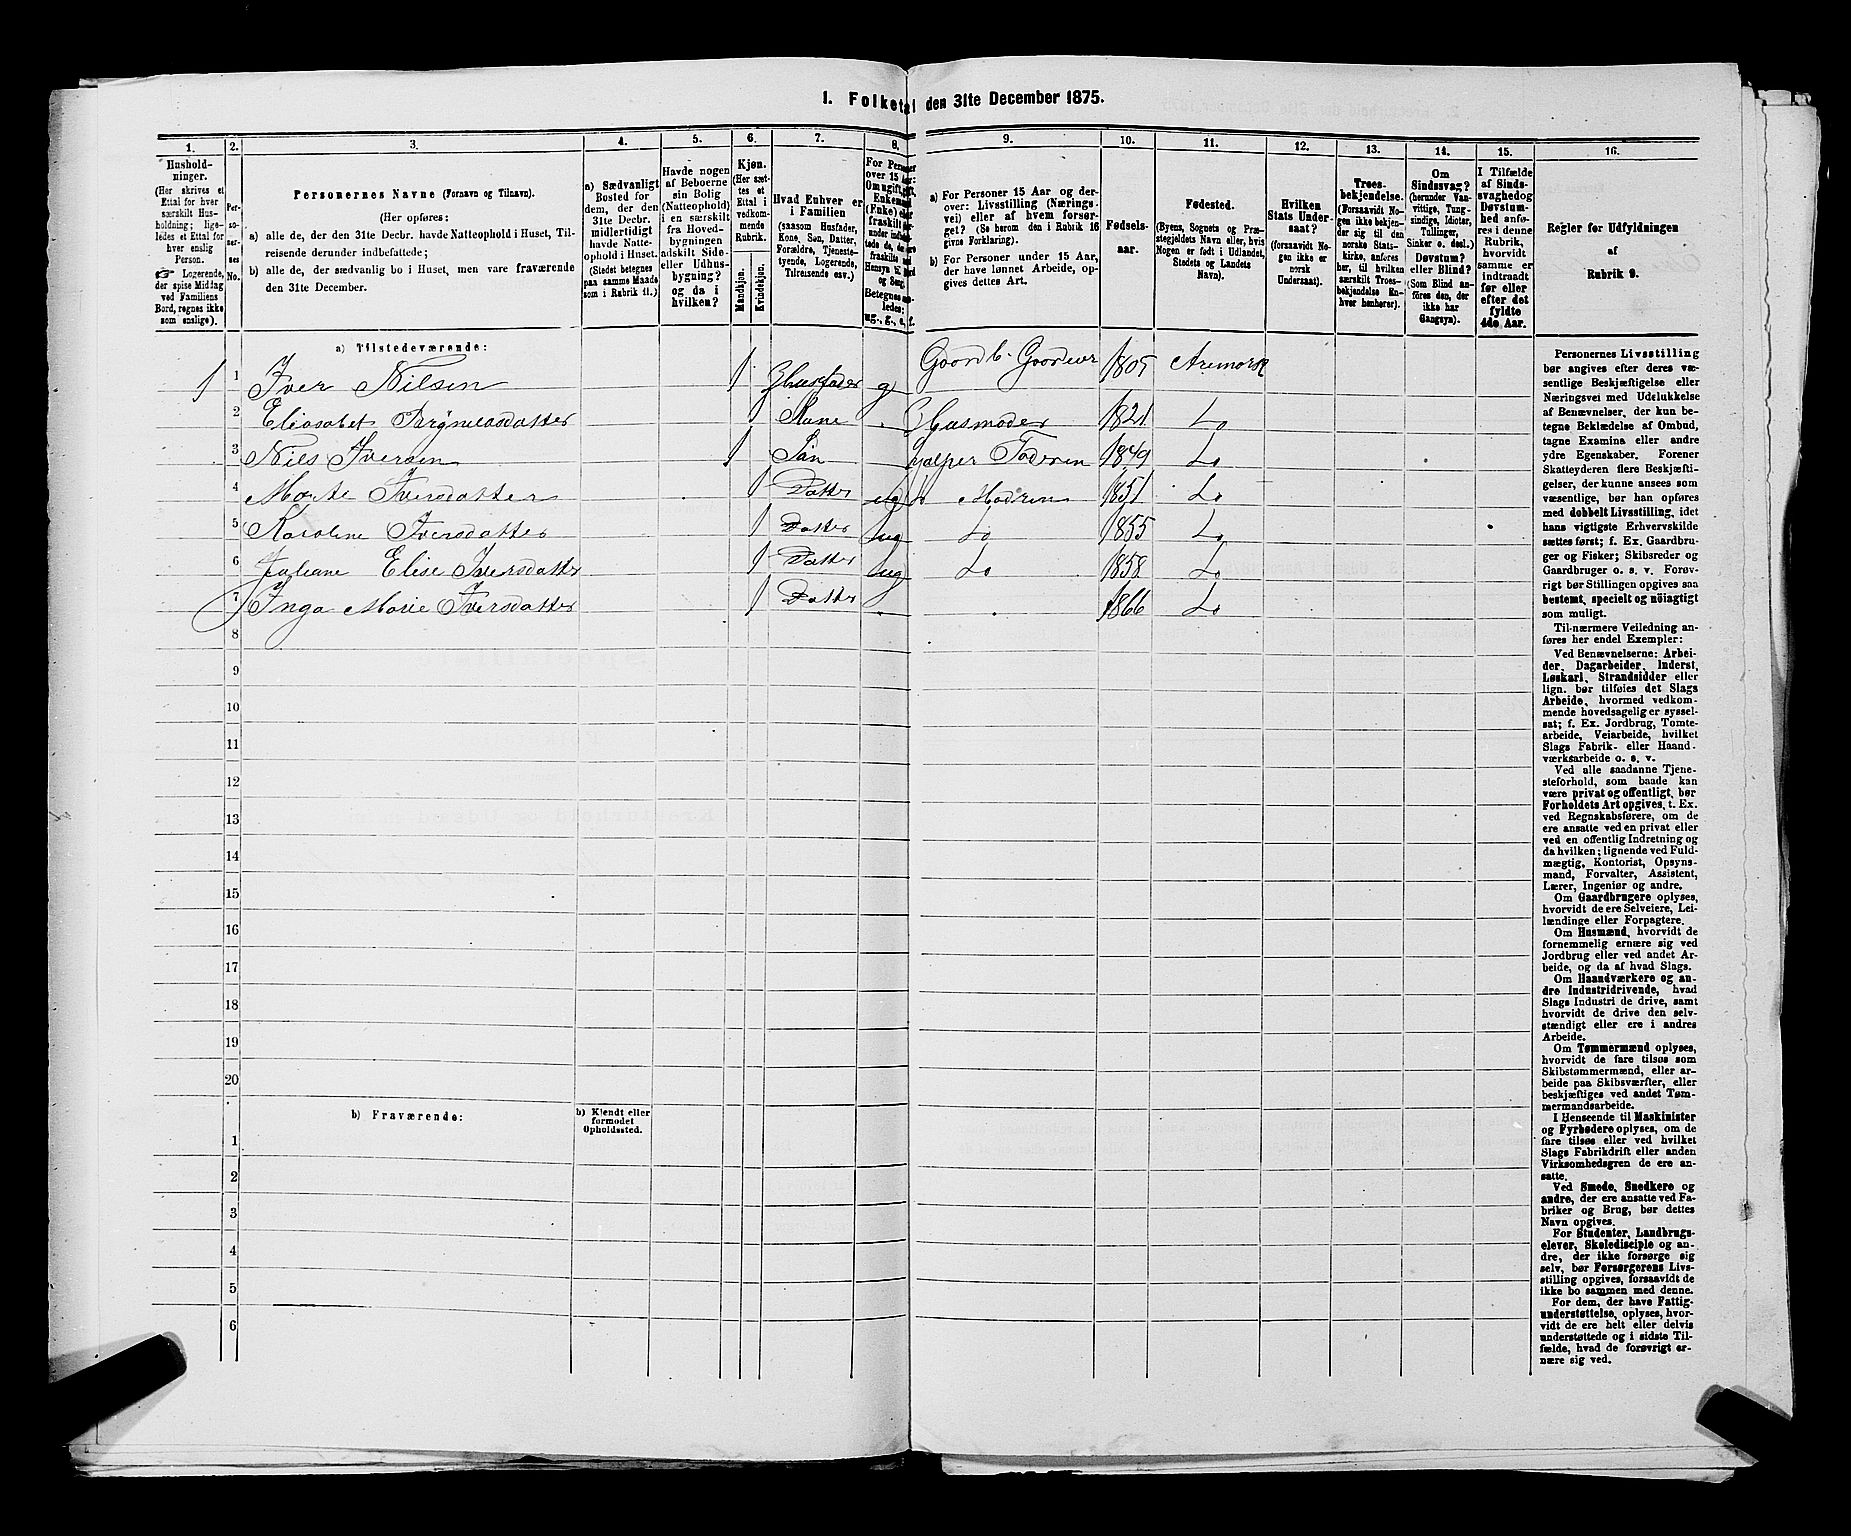 1. Folketal den 31te December 1875.
1. 2. 3. 4. 5. 6. 7. 8. 9. 10. 11. 12. 13. 14. 15. 16.
Hushold-
ninger.
(Her skrives et
Ettal for hver
særskilt Hus-
holdning; lige-
ledes et Ettal for
hver enslig
Person.
☛ Logerende,
der spise Middag
ved Familiens
Bord, regnes ikke
som enslige).
Per-
so-
ner-
nes
No.
Personernes Navne (Fornavn og Tilnavn).
(Her opføres:
a) alle de, der den 31te Decbr. havde Natteophold i Huset, Til-
reisende derunder indbefattede;
b) alle de, der sædvanlig bo i Huset, men vare fraværende
den 31te December.
a) Sædvanligt
Bosted for
dem, der den
31te Decbr.
midlertidigt
havde Natte-
ophold i Huset.
(Stedet betegnes
paa samme Maade
som i Rubrik 11.)
Havde nogen
af Beboerne
sin Bolig
(Natteophold)
i en særskilt
fra Hoved-
bygningen
adskilt Side-
eller Udhus-
bygning?
og da i
hvilken?
Kjøn.
(Her sæt-
tes et
Ettal i
vedkom-
mende
Rubrik.
Mandkjøn.
Kvindekjøn.
Hvad Enhver er
i Familien
(saasom Husfader,
Kone, Søn, Datter,
Forældre, Tjeneste-
tyende, Logerende,
Tilreisende osv.)
For Personer
over 15 Aar:
ug., g., e., f.
a) For Personer 15 Aar og der-
over: Livsstilling (Nærings-
vei) eller af hvem forsør-
get? (Se herom den i Rubrik 16
givne Forklaring).
b) For Personer under 15 Aar,
der have lønnet Arbeide, op-
gives dettes Art.
Fødsels-
aar.
Fødested.
(Byens, Sognets og Præ-
stegjeldets Navn eller, hvis
Nogen er født i Udlandet,
Stedets og Landets
Navn).
Hvilken
Stats Under-
saat?
(forsaavidt No-
gen ikke er
norsk
Undersaat).
Troes-
bekjendelse.
(Forsaavidt No-
gen ikke bekjen-
der sig til den
norske Stats-
kirke, anføres
her, til hvilken
særskilt Troes-
bekjendelse En-
hver henhører).
Om
Sindssvag?
(herunder Van-
vittige, Tung-
sindige, Idioter,
Tullinger,
Sinker o. desl.)
Døvstum?
eller Blind?
(Som Blind an-
føres den, der
ikke har
Gangsyn).
I Tilfælde
af Sinds-
svaghed og
Døvstum-
hed anfø-
res i denne
Rubrik,
hvorvidt
samme er
indtraadt
før eller
efter det
fyldte
4de Aar.
Regler for Udfyldningen
af
Rubrik 9.
a) Tilstedeværende:
1 1 Iver Nilsen 1 Husfader g Gaardb. 1805 Aremark
2 Elisabet 1 Kone Husmoder 1821 Do
3 Nils Iversen 1 Søn hjelper Faderen 1849 Do
4 Marte Iversdatter 1 Datter ug do Modren 1851 Do
5 Karoline Iversdatter 1 Datter ug Do 1855 Do
6 Juliane Elise Iversdatter 1 Datter ug Do 1858 Do
7 Inga Marie Iversdatter 1 Datter 1866 Do
8
9
10
11
12
13
14
15
16
17
18
19
20
b) Fraværende: b) Kjendt eller
formodet
Opholdssted.
1
2
3
4
5
6
Personernes Livsstilling
bør angives efter deres væ-
sentlige Beskjæftigelse eller
Næringsvei med Udelukkelse
af Benævnelser, der kun be-
tegne Beklædelse af Ombud,
tagne Examina eller andre
ydre Egenskaber. Forener
Skatteyderen flere Beskjæfti-
gelser, der kunne ansees som
væsentlige, bør han opføres
med dobbelt Livsstilling, idet
hans vigtigste Erhvervskilde
sættes først; f. Ex. Gaardbru-
ger og Fisker; Skibsreder og
Gaardbruger o. s. v. Forøv-
rigt bør Stillingen opgives saa
bestemt, specielt og nöiagtigt
som muligt.
Til nærmere Veiledning an-
føres her endel Exempler:
Ved Benævnelserne: Arbei-
der, Dagarbeider, Inderst,
Løskarl, Strandsidder eller
lign. bør tilføies det Slags
Arbeide, hvormed vedkom-
mende hovedsagelig er syssel-
sat; f. Ex. Jordbrug, Tomte-
arbeide, Veiarbeide, hvilket
Slags Fabrik- eller Haand-
værksarbeide o. s. v.
Ved alle saadanne Tjene-
steforhold, som baade kan
være privat og offentligt, bør
Forholdets Art opgives, t. Ex.
ved Regnskabsførere, om de
ere ansatte ved en privat eller
ved en offentlig Indretning og
da hvilken; lignende ved Fuld-
mægtig, Kontorist, Opsyns-
mand, Forvalter, Assistent,
Lærer, Ingeniør og andre.
Om Gaardbrugere oplyses,
hvorvidt de ere Selveiere, Lei-
lændinge eller Forpagtere.
Om Husmænd, hvorvidt de
fornemmelig ernære sig ved
Jordbrug eller ved andet Ar-
beide, og da af hvad Slags.
Om Haandværkere og an-
dre Industridrivende, hvad
Slags Industri de drive, samt
hvorvidt de drive den selv-
stændigt eller ere i andres
Arbeide.
Om Tømmermænd oplyses,
hvorvidt de fare tilsøs som
Skibstømmermænd, eller ar-
beide paa Skibsværfter, eller
beskjæftiges ved andet Tøm-
mermandsarbeide.
I Henseende til Maskinister
og Fyrbødere oplyses, om de
fare tilsøs eller ved hvilket
Slags Fabrikdrift eller anden
Virksomhedsgren de ere an-
satte.
Ved Smede, Snedkere og
andre, der ere ansatte ved Fa-
briker og Brug, bør dettes
Navn opgives.
For Studenter, Landbrugs-
elever, Skoledisciple og an-
dre, der ikke forsørge sig
selv, bør Forsørgerens Livs-
stilling opgives, forsaavidt de
ikke bo sammen med denne.
For dem, der have Fattig-
understøttelse, oplyses, hvor-
vidt de ere helt eller delvis
understøttede og i sidste Til-
fælde, hvad de forøvrigt er-
nære sig ved.